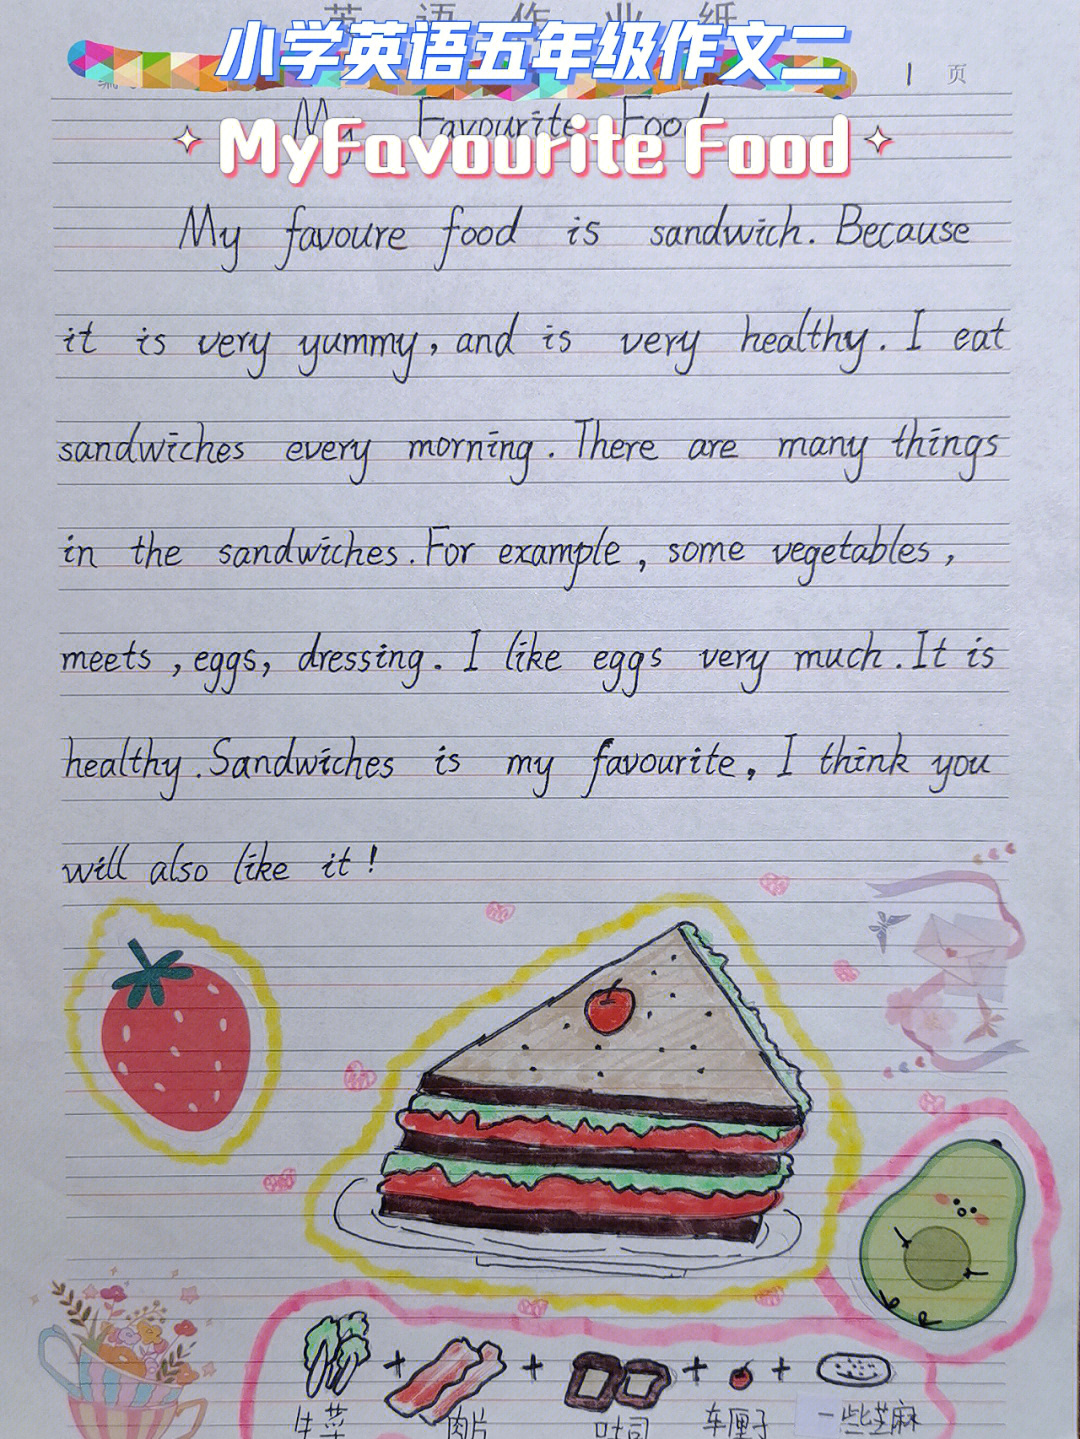 英语作业纸
小学英语五年级作文二
1 页
My Favourite Food
MyFavourite Food
My favoure food is sandwich. Because
it is very yummy, and is very healthy. I eat
sandwiches every morning. There are many things
in the sandwiches. For example, some vegetables,
meets, eggs, dressing. I like eggs very much. It is
healthy. Sandwiches is my favourite, I think you
will also like it!
+ + + +
生菜 肉片 吐司 车厘子 一些芝麻